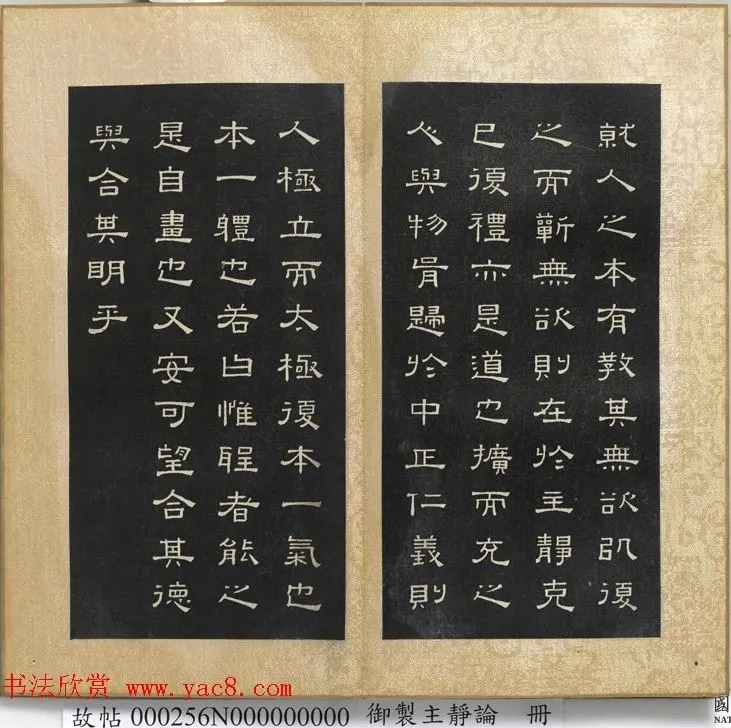 就人之本有教其無欲以復
之而蘄無欲則在於主靜克
己復禮亦是道也擴而充之
與物胥歸於中正仁義則
人極立而太極復本一氣也
本一體也若曰惟聖者能之
是自畫也又安可望合其德
與合其明乎
书法欣赏 www.yac8.com
故帖 000256N000000000 御製主靜論 冊
國
NAT